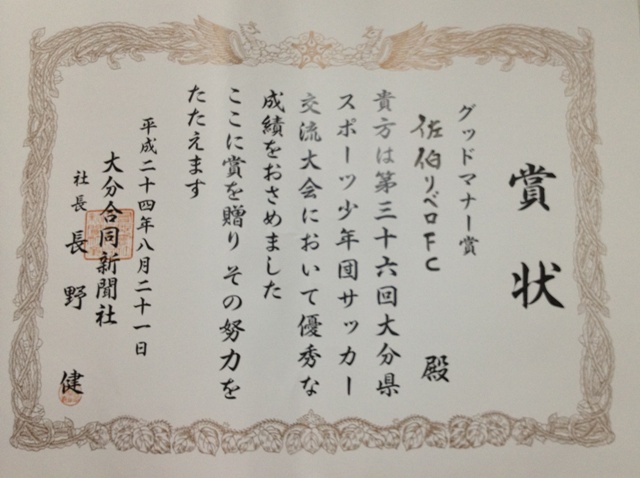 賞状
グッドマナー賞
佐伯リベロFC 殿
貴方は第三十六回大分県
スポーツ少年団サッカー
交流大会において優秀な
成績をおさめました
ここに賞を贈り その努力を
たたえます
平成二十四年八月二十一日
大分合同新聞社
社長 長野 健